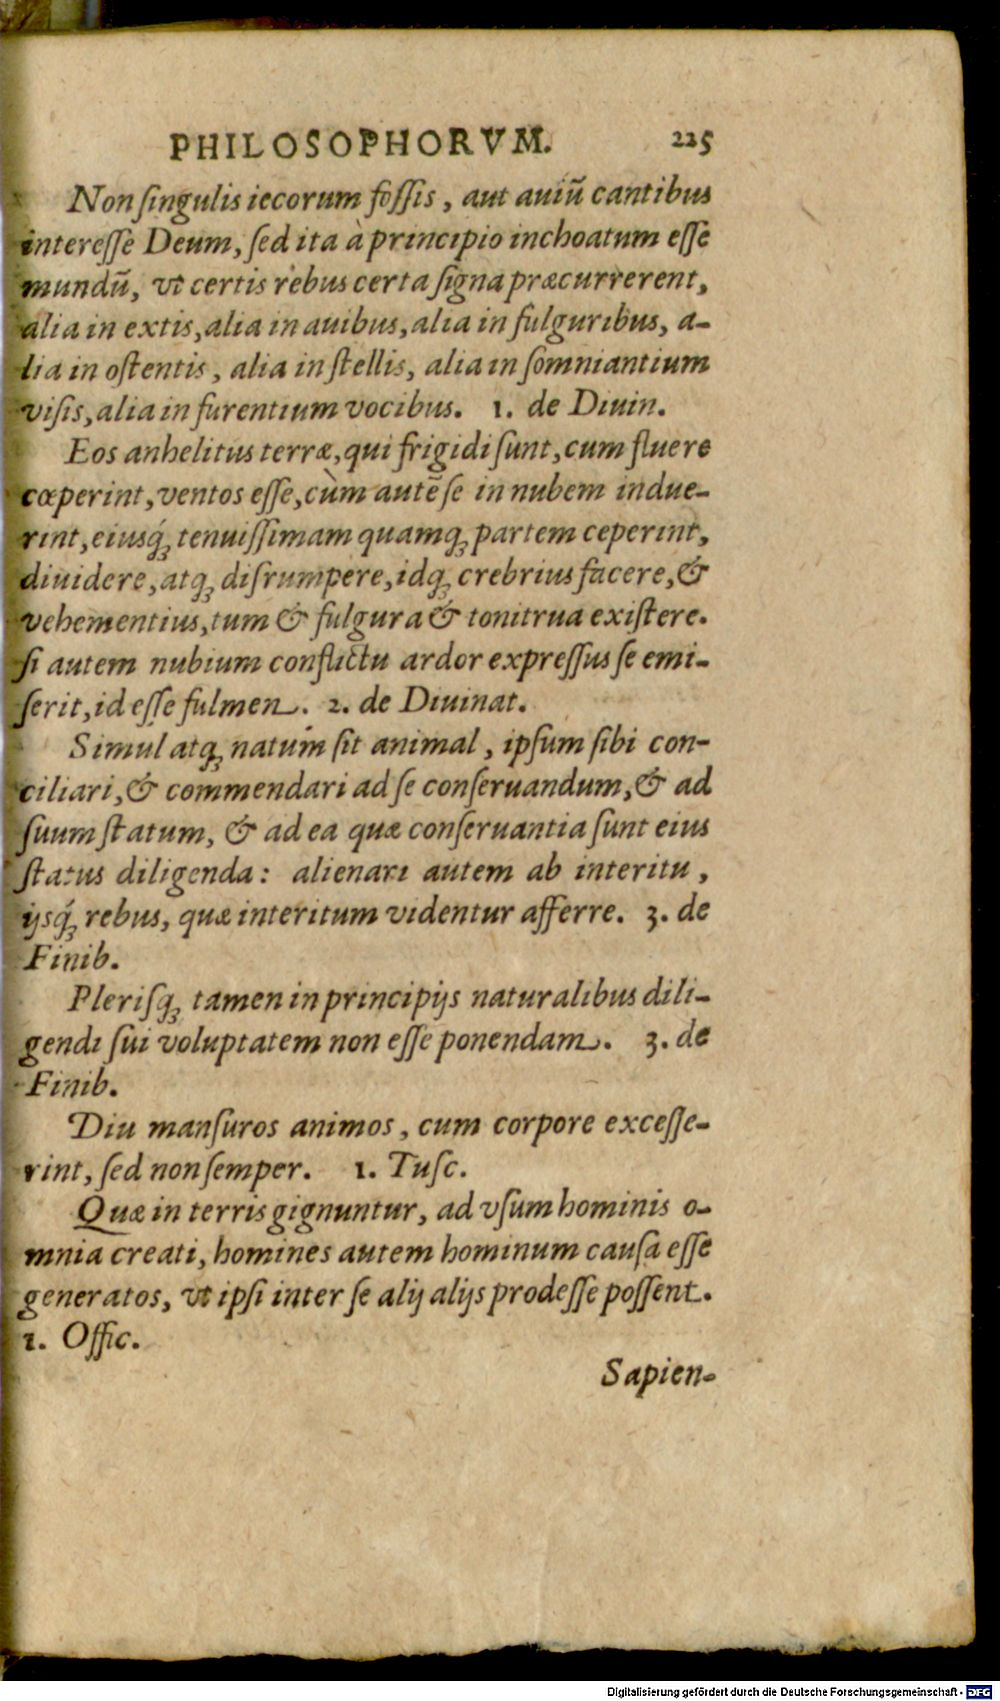 PHILOSOPHORVM. 225
Non ſingulis iecorum foſſis, aut auiū cantibus
intereſſe Deum, ſed ita à principio inchoatum eſſe
mundū, vt certis rebus certa ſigna præcurrerent,
alia in extis, alia in auibus, alia in fulguribus, a-
lia in oſtentis, alia in ſtellis, alia in ſomniantium
viſis, alia in furentium vocibus. 1. de Diuin.
Eos anhelitus terræ, qui frigidi ſunt, cum fluere
cœperint, ventos eſſe, cùm autē ſe in nubem indue-
rint, eiusq́ꝫ tenuiſſimam quamqꝫ partem ceperint,
diuidere, atqꝫ diſrumpere, idqꝫ crebrius facere, &
vehementius, tum & fulgura & tonitrua exiſtere.
ſi autem nubium conflictu ardor expreſſus ſe emi-
ſerit, id eſſe fulmen. 2. de Diuinat.
Simul atqꝫ natum ſit animal, ipſum ſibi con-
ciliari, & commendari ad ſe conſeruandum, & ad
ſuum ſtatum, & ad ea quæ conſeruantia ſunt eius
ſtatus diligenda: alienari autem ab interitu,
ijsq́ꝫ rebus, quæ interitum videntur afferre. 3. de
Finib.
Pleriſqꝫ tamen in principijs naturalibus dili-
gendi ſui voluptatem non eſſe ponendam. 3. de
Finib.
Diu manſuros animos, cum corpore exceſſe-
rint, ſed non ſemper. 1. Tuſc.
Quæ in terris gignuntur, ad vſum hominis o-
mnia creati, homines autem hominum cauſa eſſe
generatos, vt ipſi inter ſe alij alijs prodeſſe poſſent.
1. Offic.
Sapien-
Digitalisierung gefördert durch die Deutsche Forschungsgemeinschaft - DFG